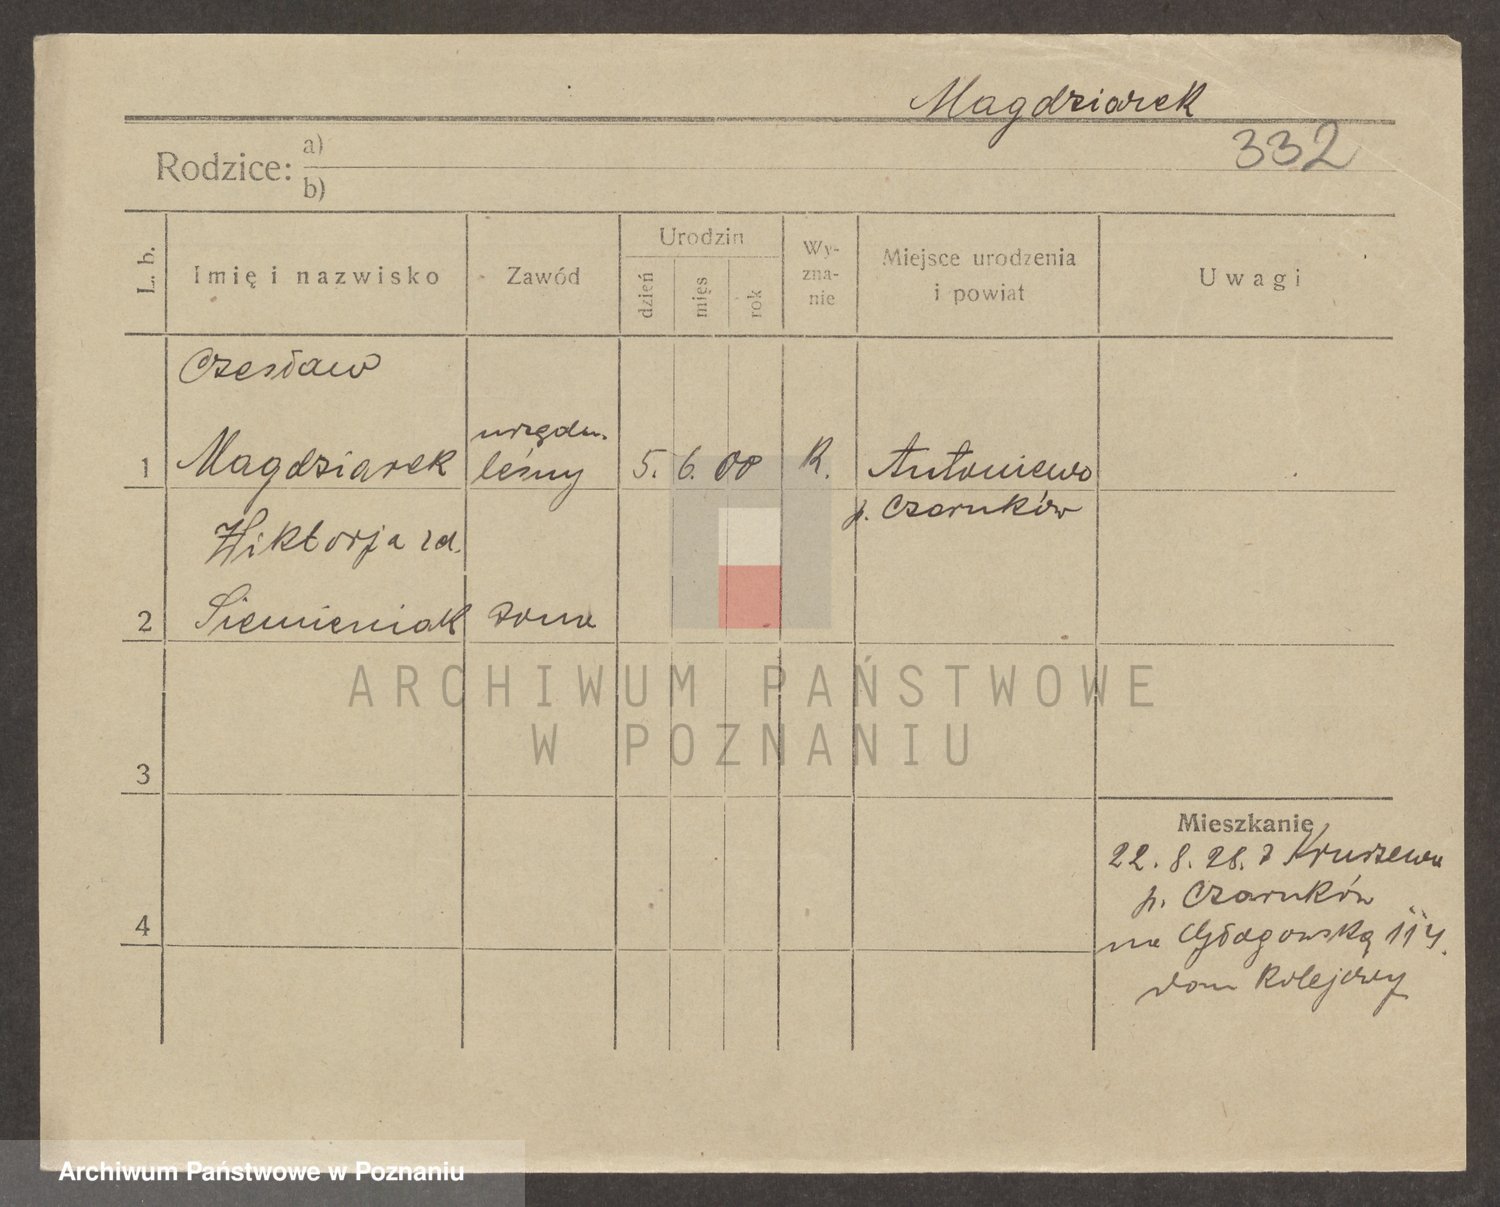 Magdziarek
332
Rodzice: a)
b)
L. b.
Imię i nazwisko
Zawód
Urodzin
dzień
mięs
rok
Wy-
zna-
nie
Miejsce urodzenia
i powiat
Uwagi
Czesław
urzędn.
1 Magdziarek leśny 5. 6. 00 R. Antoniewo
p. Czarnków
Wiktorja zd.
2 Siemieniak żona
ARCHIWUM PAŃSTWOWE
W POZNANIU
3
Mieszkanie
22. 8. 28. z Kruszewa
p. Czarnków
4
na 114.
dom Kolejowy
Archiwum Państwowe w Poznaniu